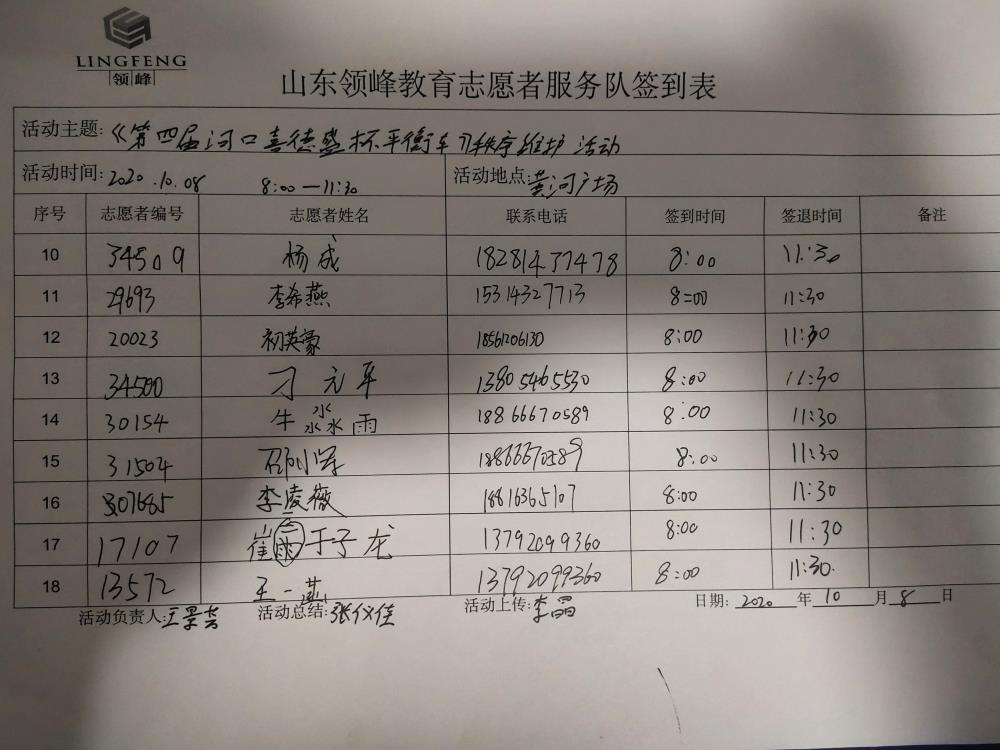 LINGFENG
领峰
山东领峰教育志愿者服务队签到表
活动主题: 《第四届河口喜德盛杯平衡车》秩序维护活动
活动时间: 2020.10.08 8:00—11:30 活动地点: 黄河广场
序号 志愿者编号 志愿者姓名 联系电话 签到时间 签退时间 备注
10 34509 杨成 18281437478 8:00 11:30
11 29693 李希燕 15314327713 8:00 11:30
12 20023 初英豪 18561206130 8:00 11:30
13 34500 刁元平 13805465530 8:00 11:30
14 30154 牛淼雨 18866670589 8:00 11:30
15 31504 18866670589 8:00 11:30
16 307685 李凌薇 18816365107 8:00 11:30
17 17107 崔 于子龙 13792099360 8:00 11:30
18 13572 王一 13792099360 8:00 11:30
活动负责人: 王景芸 活动总结: 张仪佳 活动上传: 李晶 日期: 2020 年 10 月 8 日